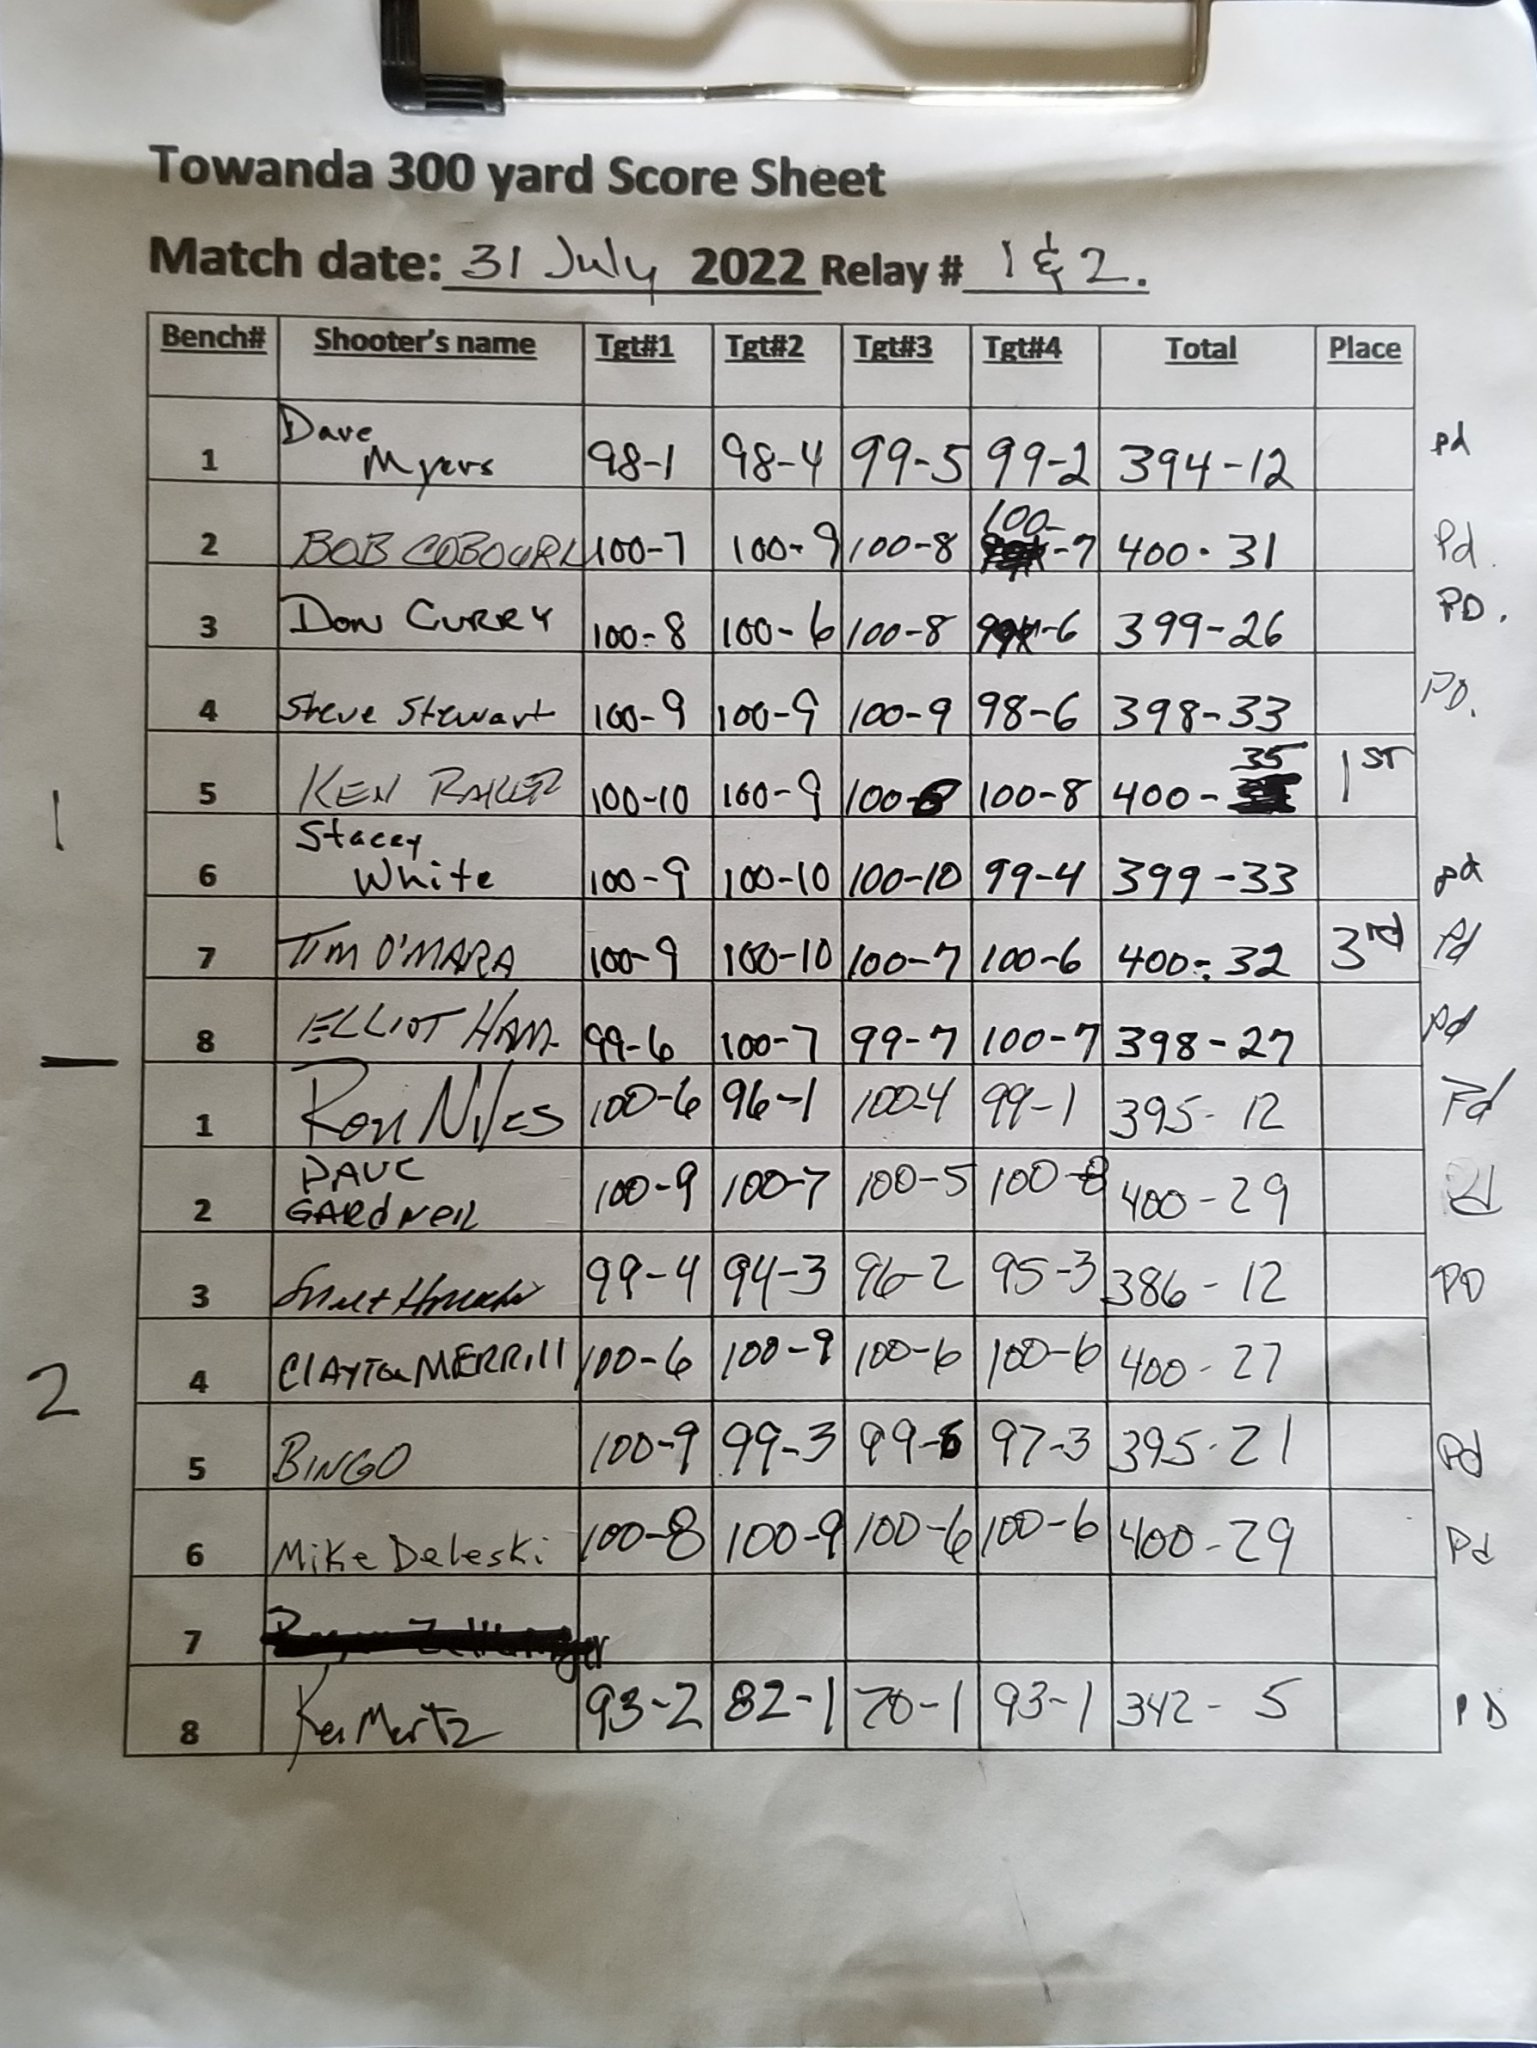 Towanda 300 yard Score Sheet
Match date: 31 July 2022 Relay # 1 & 2.
Bench# Shooter's name Tgt#1 Tgt#2 Tgt#3 Tgt#4 Total Place
1 Dave Myers 98-1 98-4 99-5 99-2 394-12 pd
2 BOB COBOURN 100-7 100-9 100-8 100-7 400-31 Pd.
3 DON CURRY 100-8 100-6 100-8 -6 399-26 PD.
4 Steve Stewart 100-9 100-9 100-9 98-6 398-33 PD.
1
5 KEN 100-10 100-9 100-8 100-8 400-35 1ST
6 Stacey White 100-9 100-10 100-10 99-4 399-33 pd
7 TIM O'MARA 100-9 100-10 100-7 100-6 400-32 3rd Pd
8 ELLIOT HAM 99-6 100-7 99-7 100-7 398-27 pd
1 Ron Niles 100-6 96-1 100-4 99-1 395-12 Pd
2 DAVE GARDNER 100-9 100-7 100-5 100-8 400-29 Pd
3 99-4 94-3 96-2 95-3 386-12 PD
4 CLAYTON MERRill 100-6 100-9 100-6 100-6 400-27
2
5 BINGO 100-9 99-3 99-6 97-3 395-21 Pd
6 Mike Deleski 100-8 100-9 100-6 100-6 400-29 Pd
7
8 Ken Mertz 93-2 82-1 -1 93-1 342-5 PD